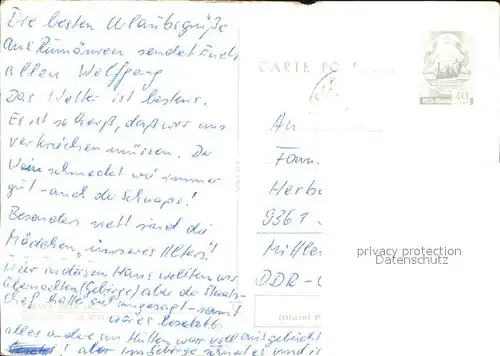 Die besten Urlaubsgrüße
aus Rumänien sendet Euch
allen Wolfgang
Das Wetter ist bestens.
Es ist so heiß, daß wir uns
verkriechen müssen. Der
Wein schmeckt wie immer
gut - auch der Schnaps!
Besonders nett sind die
Mädchen „unseres Alters"!
Hier in diesem Haus wollten wir
übernachten (Gebirge) aber die Staats-
chef hatte sich angesagt - somit
alles besetzt
alles andere im Hütten war voll ausgebucht
aber im Gebirge
CARTE PO
POSTA ROMANA
40
An
Fam.
Herbe
9361
Mittle
DDR -
privacy protection
Datenschutz
(Oficiul P